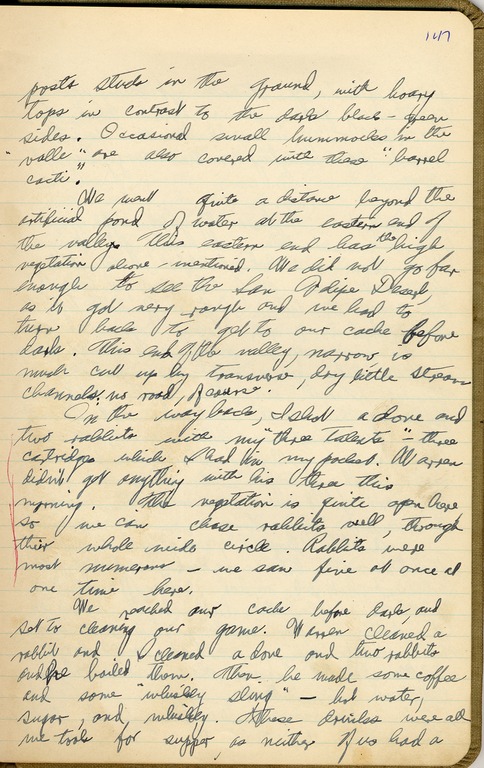 147
posts studs in the ground, with hoary
tops in contrast to the dark black-green
sides. Occasional small hummocks in the
"valle" are also covered with these "barrel
cacti."
We went quite a distance beyond the
artificial pond of water at the eastern end of
the valley. This eastern end has the high
vegetation above-mentioned. We did not go far
enough to see the San Felipe Desert,
as it got very rough and we had to
turn back to get to our cache before
dark. This end of the valley, narrow is
much cut up by transverse, dry little stream
channels; no road, of course.
On the way back, I shot a dove and
two rabbits with my "three talents" - three
cartridges which I had in my pocket. Warren
didn't get anything with his three this
morning. The vegetation is quite open here
so we can chase rabbits well, through
their whole wide circle. Rabbits were
most numerous - we saw five at once at
one time here.
We reached our cache before dark, and
set to cleaning our game. Warren cleaned a
rabbit and I cleaned a dove and two rabbits
and he boiled them. Then he made some coffee
and some "whiskey sling" - hot water,
sugar, and whiskey. These drinks were all
we took for supper, as neither of us had a